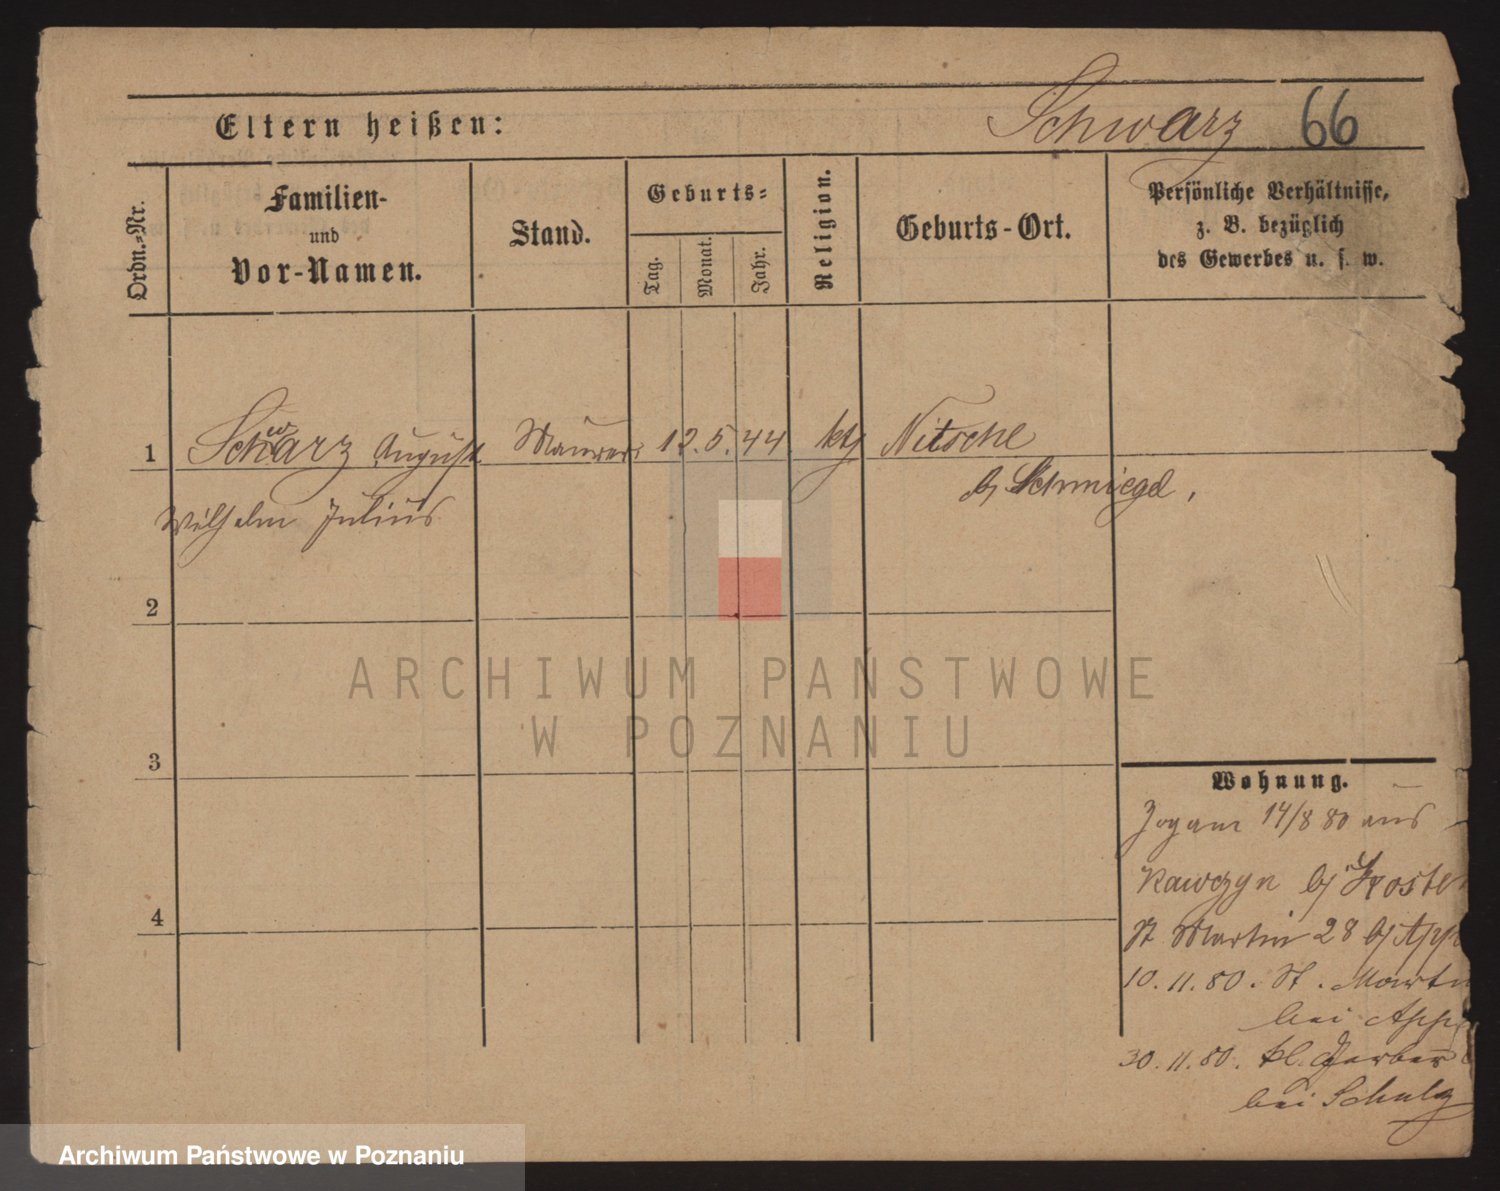 Schwarz 66
Eltern heißen:
Ordn.-Nr.
Familien-
und
Vor-Namen.
Stand.
Geburts-
Tag.
Monat.
Jahr.
Religion.
Geburts-Ort.
Persönliche Verhältnisse,
z. B. bezüglich
des Gewerbes u. s. w.
1 Schwarz August Maurer 12. 5. 44 kth Nitsche
b/ Schmiegel,
Wilhelm Julius
2
3
4
Wohnung.
Zog am 14/8 80 aus
Kawczyn b/ Kosten
St Martin 28 b/ App
10. 11. 80. St. Martin
bei App
30. 11. 80. kl. Gerber
bei Schulz
ARCHIWUM PAŃSTWOWE
W POZNANIU
Archiwum Państwowe w Poznaniu